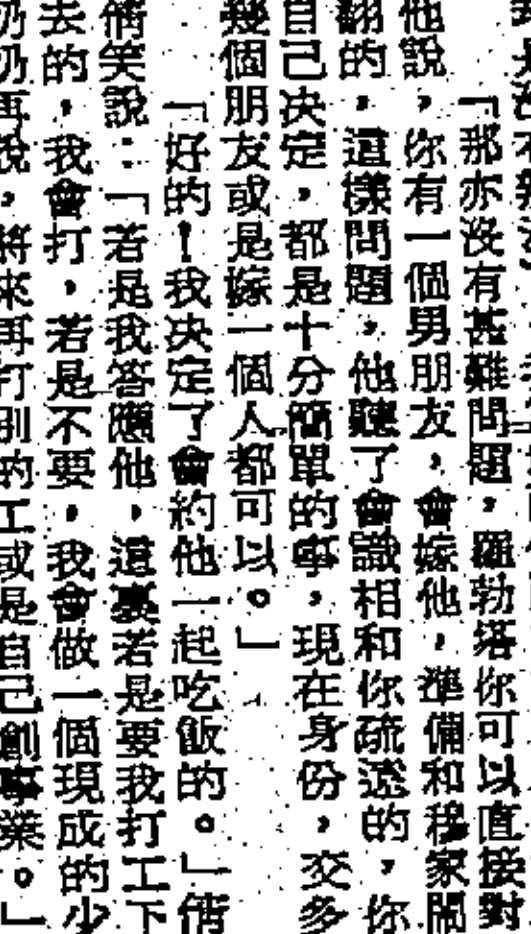 「那亦沒有甚難問題，羅勃塔你可以直接對
他說，你有一個男朋友，會嫁他，準備和程家鬧
翻的，這樣問題，他聽了會識相和你疏遠的，你
自己决定，都是十分簡單的事，現在身份，交多
幾個朋友或是嫁一個人都可以。」
「好的！我决定了會約他一起吃飯的。」倩
倩笑說：「若是我答應他，這裏若是要我打工下
去的，我會打，若是不要，我會做一個現成的少
奶奶再說，將來再打別的工或是自己創事業。」